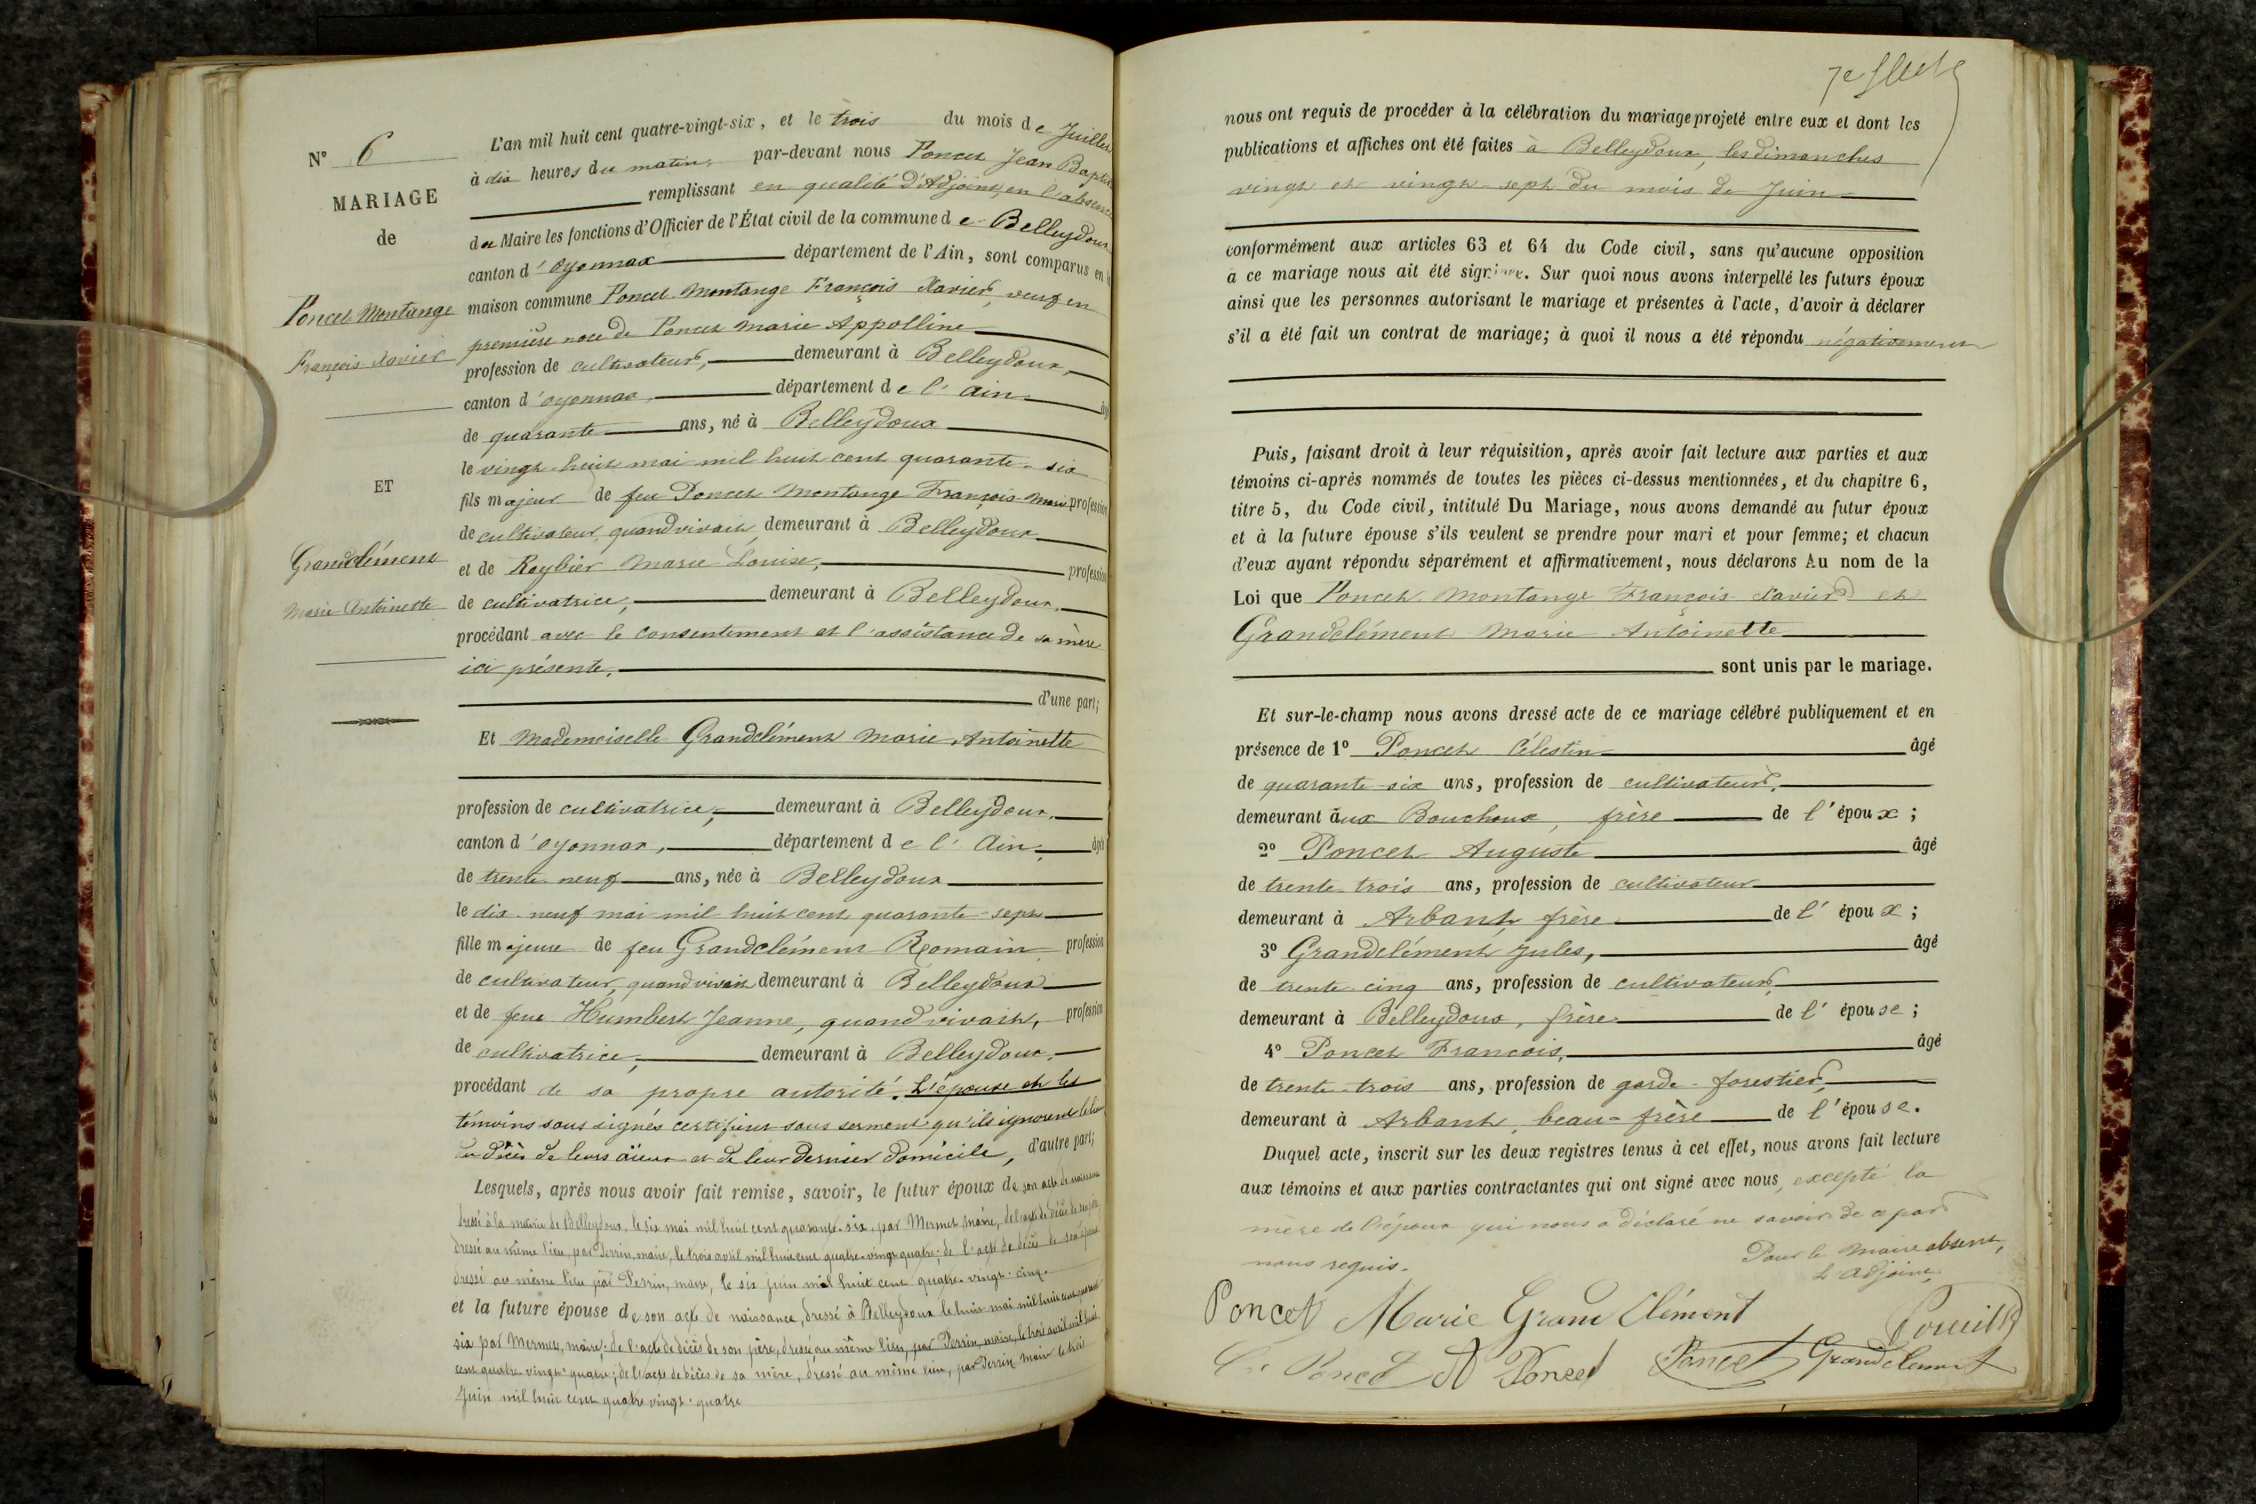 N° 6
MARIAGE
de
Poncet Montange
François Xavier
ET
Grandclément
Marie Antoinette
L'an mil huit cent quatre-vingt-six, et le trois du mois de Juillet
à dix heures du matin, par-devant nous Poncet Jean Baptiste
remplissant en qualité d'Adjoint, en l'absence
du Maire les fonctions d'Officier de l'État civil de la commune de Belleydoux
canton d'Oyonnax département de l'Ain, sont comparus en la
maison commune Poncet Montange François Xavier, veuf en
première noce de Poncet Marie Appolline
profession de cultivateur, demeurant à Belleydoux,
canton d'oyonnax, département de l'Ain âgé
de quarante ans, né à Belleydoux
le vingt-huit mai mil huit cent quarante-six
fils majeur de feu Poncet Montange François-Marie profession
de cultivateur, quand vivait, demeurant à Belleydoux
et de Roybier Marie Louise, profession
de cultivatrice, demeurant à Belleydoux,
procédant avec le consentement et l'assistance de sa mère
ici présente,
d'une part;
Et Mademoiselle Grandclément Marie Antoinette
profession de cultivatrice, demeurant à Belleydoux,
canton d'oyonnax, département de l'Ain, âgée
de trente neuf ans, née à Belleydoux
le dix-neuf mai mil huit cent quarante-sept
fille majeure de feu Grandclément Romain profession
de cultivateur, quand vivait demeurant à Belleydoux
et de feue Humbert Jeanne, quand vivait, profession
de cultivatrice, demeurant à Belleydoux,
procédant de sa propre autorité. L'épouse et les
témoins sous signés certifient sous serment qu'ils ignorent le lieu
du décès de leurs aïeux et de leur dernier domicile, d'autre part;
Lesquels, après nous avoir fait remise, savoir, le futur époux de son acte de naissance
dressé à la mairie de Belleydoux, le six mai mil huit cent quarante-six, par Mermet, maire, de l'acte de décès de son père
dressé au même lieu, par Perrin, maire, le trois avril mil huit cent quatre-vingt quatre; de l'acte de décès de son épouse
dressé au même lieu par Perrin, maire, le six juin mil huit cent quatre-vingt-cinq.
et la future épouse de son acte de naissance, dressé à Belleydoux le huit mai mil huit cent quarante
six par Mermet, maire; de l'acte de décès de son père, dressé, au même lieu, par Perrin, maire, le trois avril mil huit
cent quatre vingt-quatre; de l'acte de décès de sa mère, dressé au même lieu, par Perrin, maire le trois
Juin mil huit cent quatre vingt-quatre
7e
nous ont requis de procéder à la célébration du mariage projeté entre eux et dont les
publications et affiches ont été faites à Belleydoux, les dimanches
vingt et vingt-sept du mois de Juin
conformément aux articles 63 et 64 du Code civil, sans qu'aucune opposition
à ce mariage nous ait été signifiée. Sur quoi nous avons interpellé les futurs époux
ainsi que les personnes autorisant le mariage et présentes à l'acte, d'avoir à déclarer
s'il a été fait un contrat de mariage; à quoi il nous a été répondu négativement
Puis, faisant droit à leur réquisition, après avoir fait lecture aux parties et aux
témoins ci-après nommés de toutes les pièces ci-dessus mentionnées, et du chapitre 6,
titre 5, du Code civil, intitulé Du Mariage, nous avons demandé au futur époux
et à la future épouse s'ils veulent se prendre pour mari et pour femme; et chacun
d'eux ayant répondu séparément et affirmativement, nous déclarons Au nom de la
Loi que Poncet Montange François Xavier et
Grandclément Marie Antoinette
sont unis par le mariage.
Et sur-le-champ nous avons dressé acte de ce mariage célébré publiquement et en
présence de 1° Poncet Célestin âgé
de quarante-six ans, profession de cultivateur,
demeurant aux Bouchoux, frère de l'époux;
2° Poncet Auguste âgé
de trente trois ans, profession de cultivateur
demeurant à Arbant, frère de l'époux;
3° Grandclément Jules, âgé
de trente cinq ans, profession de cultivateur,
demeurant à Belleydoux, frère de l'épouse;
4° Poncet François, âgé
de trente-trois ans, profession de garde-forestier,
demeurant à Arbant, beau-frère de l'épouse.
Duquel acte, inscrit sur les deux registres tenus à cet effet, nous avons fait lecture
aux témoins et aux parties contractantes qui ont signé avec nous, excepté la
mère de l'époux qui nous a déclaré ne savoir de ce par
nous requis.
Pour le Maire absent,
L'adjoint,
Poncet Marie Grand Clément
Poncet A Poncet Poncet Grandclement